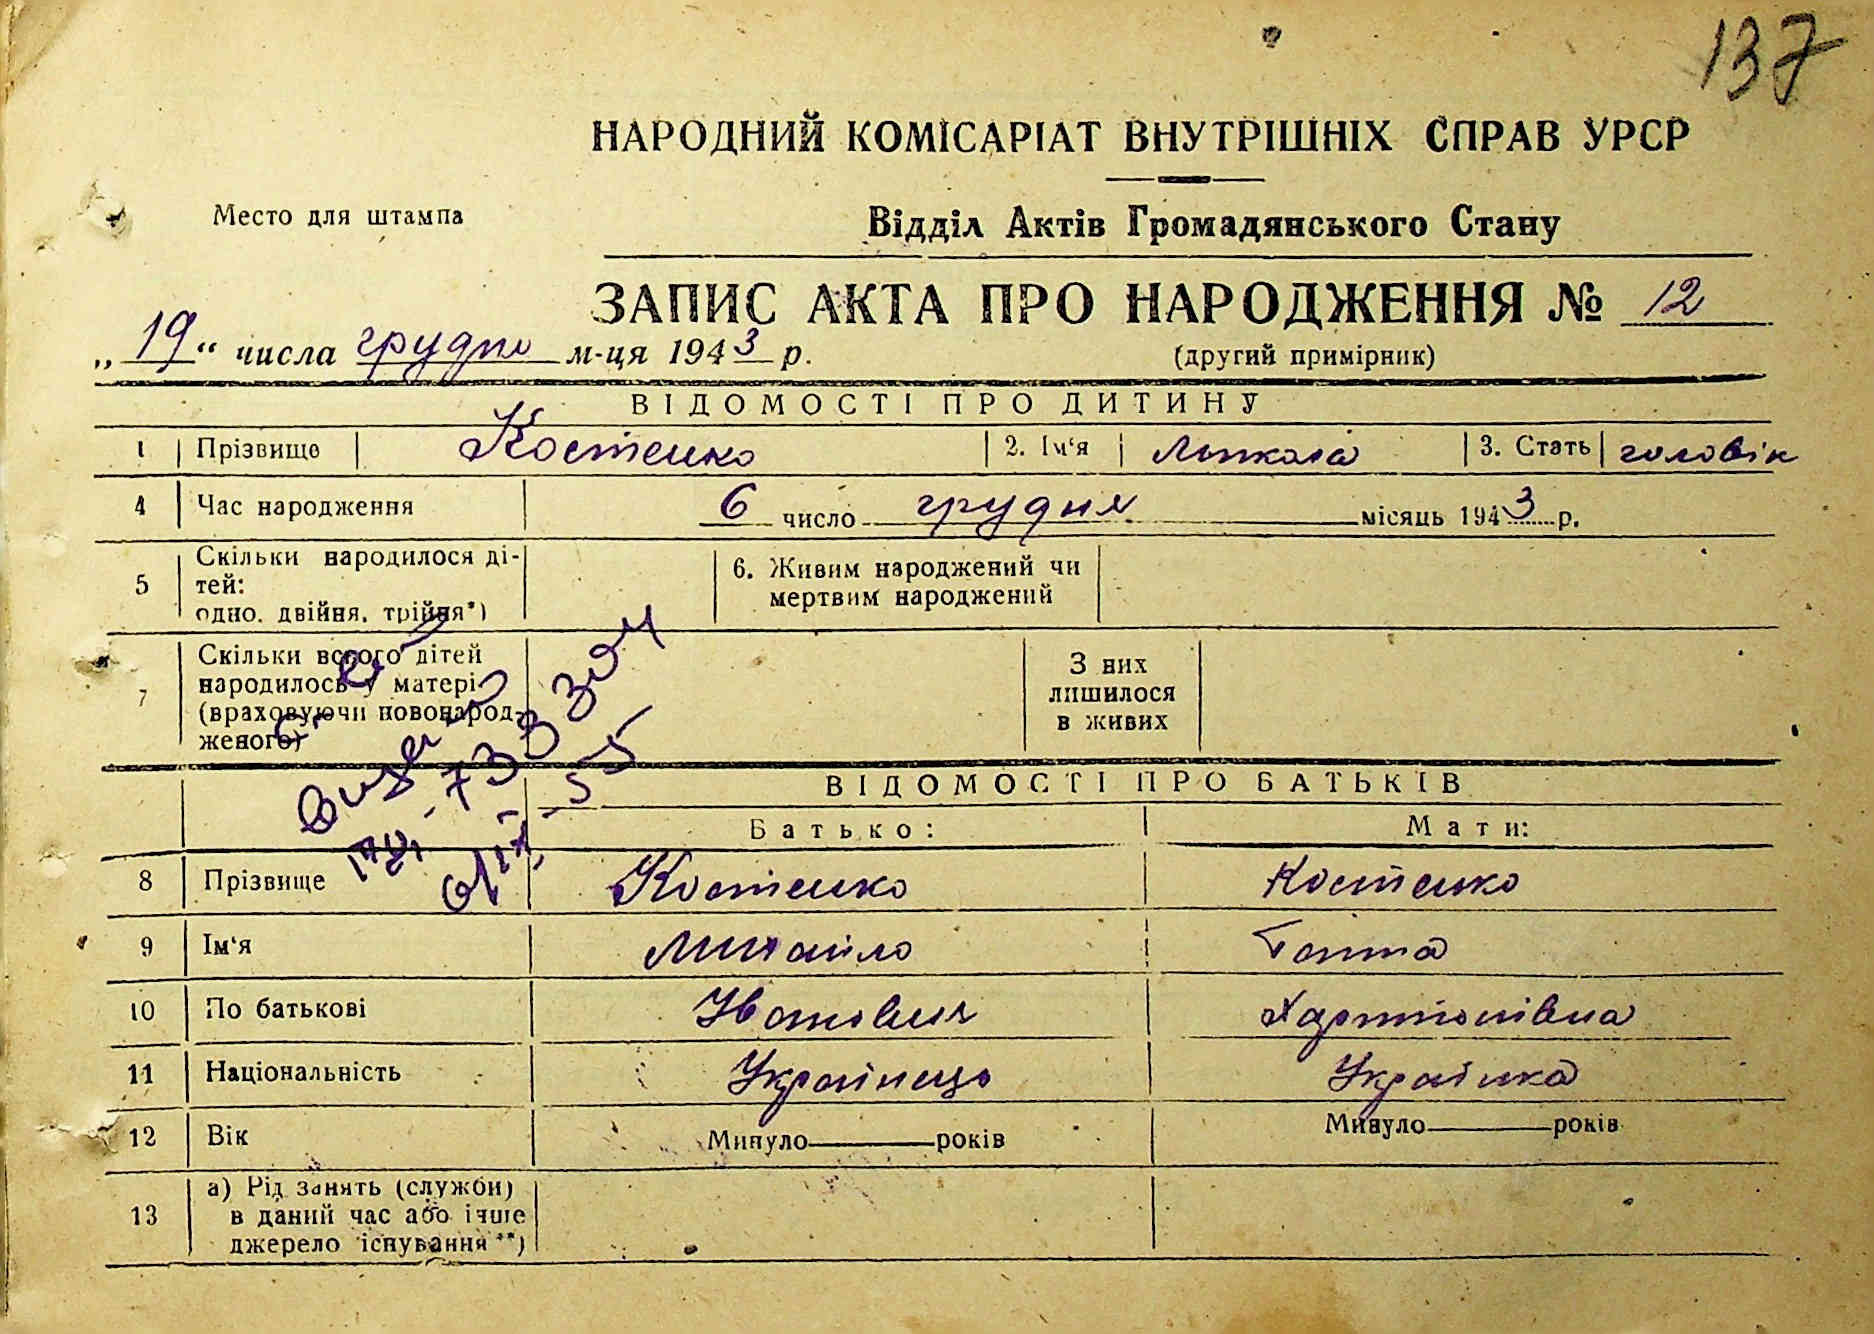 137
НАРОДНИЙ КОМІСАРІАТ ВНУТРІШНІХ СПРАВ УРСР
Место для штампа
Відділ Актів Громадянського Стану
ЗАПИС АКТА ПРО НАРОДЖЕННЯ № 12
„19“ числа грудня м-ця 1943 р.
(другий примірник)
ВІДОМОСТІ ПРО ДИТИНУ
1 Прізвище Костенко 2. Ім‘я Микола 3. Стать чоловік
4 Час народження 6 число грудня місяць 1943 р.
5 Скільки народилося ді-
тей:
одно, двійня, трійня*)
6. Живим народжений чи
мертвим народжений
7 Скільки всього дітей
народилось у матері
(враховуючи новонарод-
женого)
З них
лишилося
в живих
ВІДОМОСТІ ПРО БАТЬКІВ
Батько: Мати:
8 Прізвище Костенко Костенко
9 Ім‘я Михайло Ганна
10 По батькові Іванович Харитонівна
11 Національність Українець Українка
12 Вік Минуло років Минуло років
13 а) Рід занять (служби)
в даний час або інше
джерело існування**)